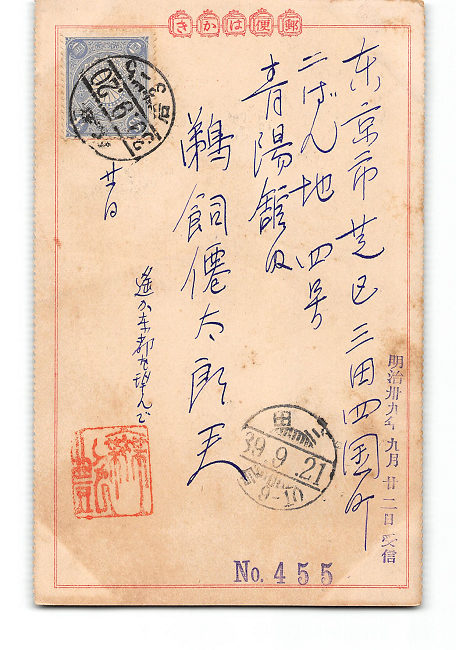 郵便はかき
東京市芝区三田四国町
二ばん地四号
青陽館内
鵜飼僊太郎天
廿日
遙か東都を望んで
明治卅九年九月廿二日受信
39.9.21
9-10
No. 455